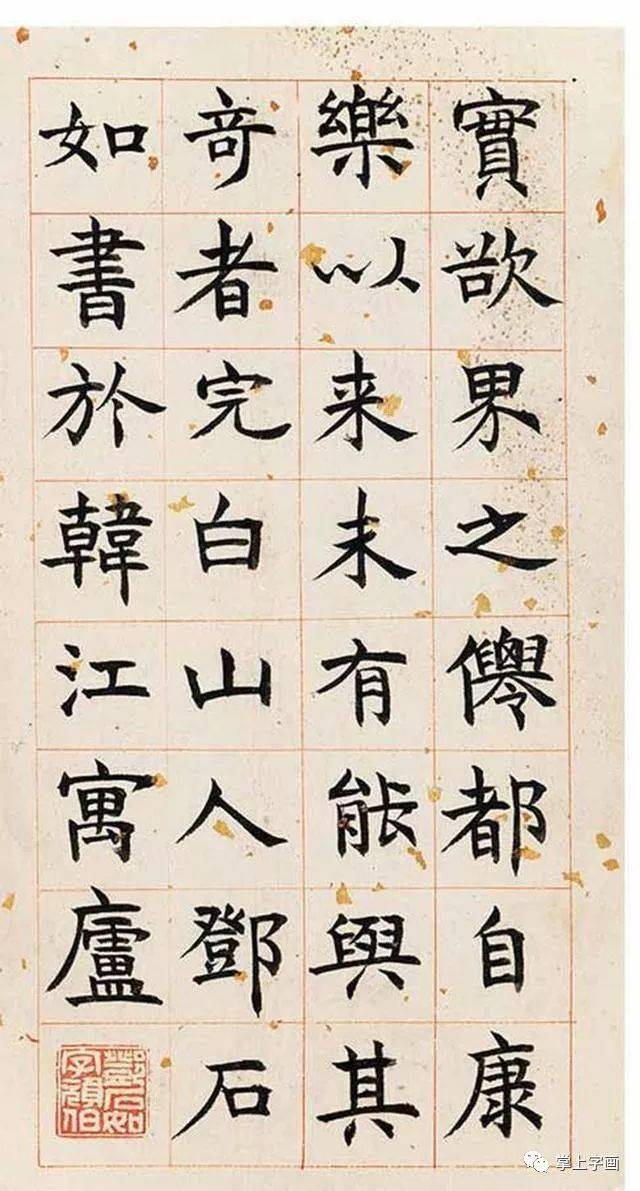 實欲界之僊都自康
樂以来未有能與其
奇者完白山人鄧石
如書於韓江寓廬
鄧石如
字頑伯
掌上字画